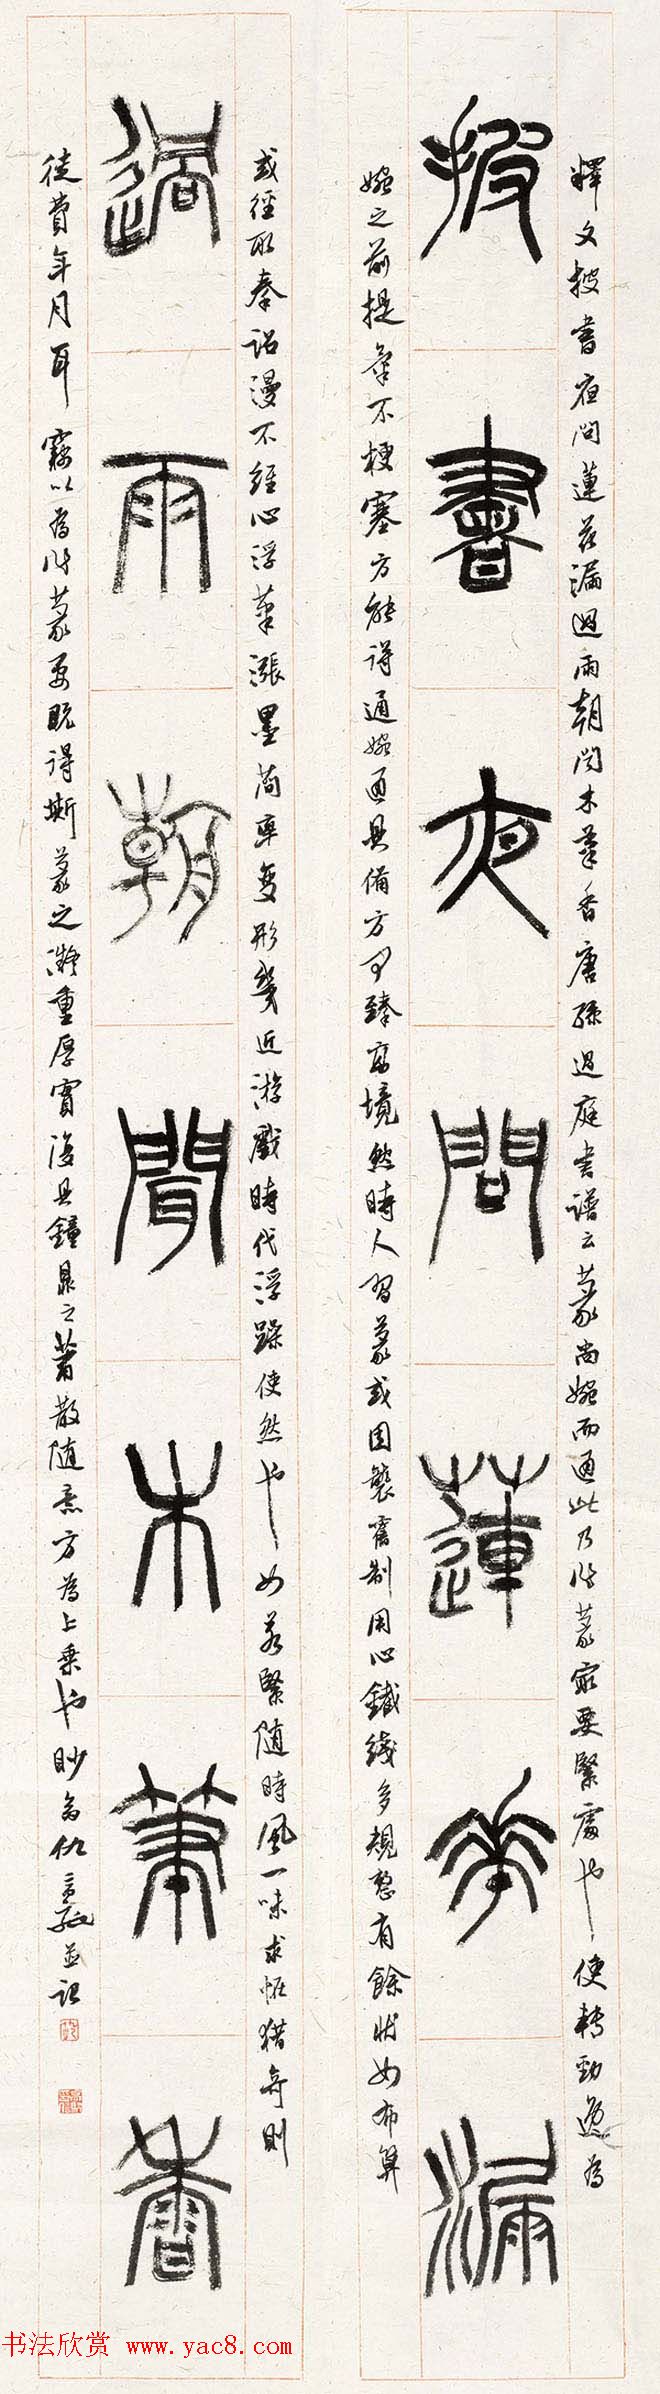 釋文披書夜問蓮花漏過雨朝聞木筆香唐孫過庭書譜云篆尚婉而通此乃作篆家要緊處也使轉勁逸為
披書夜問蓮華漏
婉之前提筆不梗塞方能得通婉通具備方可臻高境然時人習篆或因襲舊制用心鐵綫多規整有餘狀如布算
或徑取秦詔漫不經心浮筆漲墨簡率變形幾近游戲時代浮躁使然也如若緊隨時風一味求怪獵奇則
過雨朝聞木筆香
徒費年月耳竊以為作篆要既得斯篆之凝重厚實復具鐘鼎之蕭散隨意方為上乘也 並記
书法欣赏 www.yac8.com